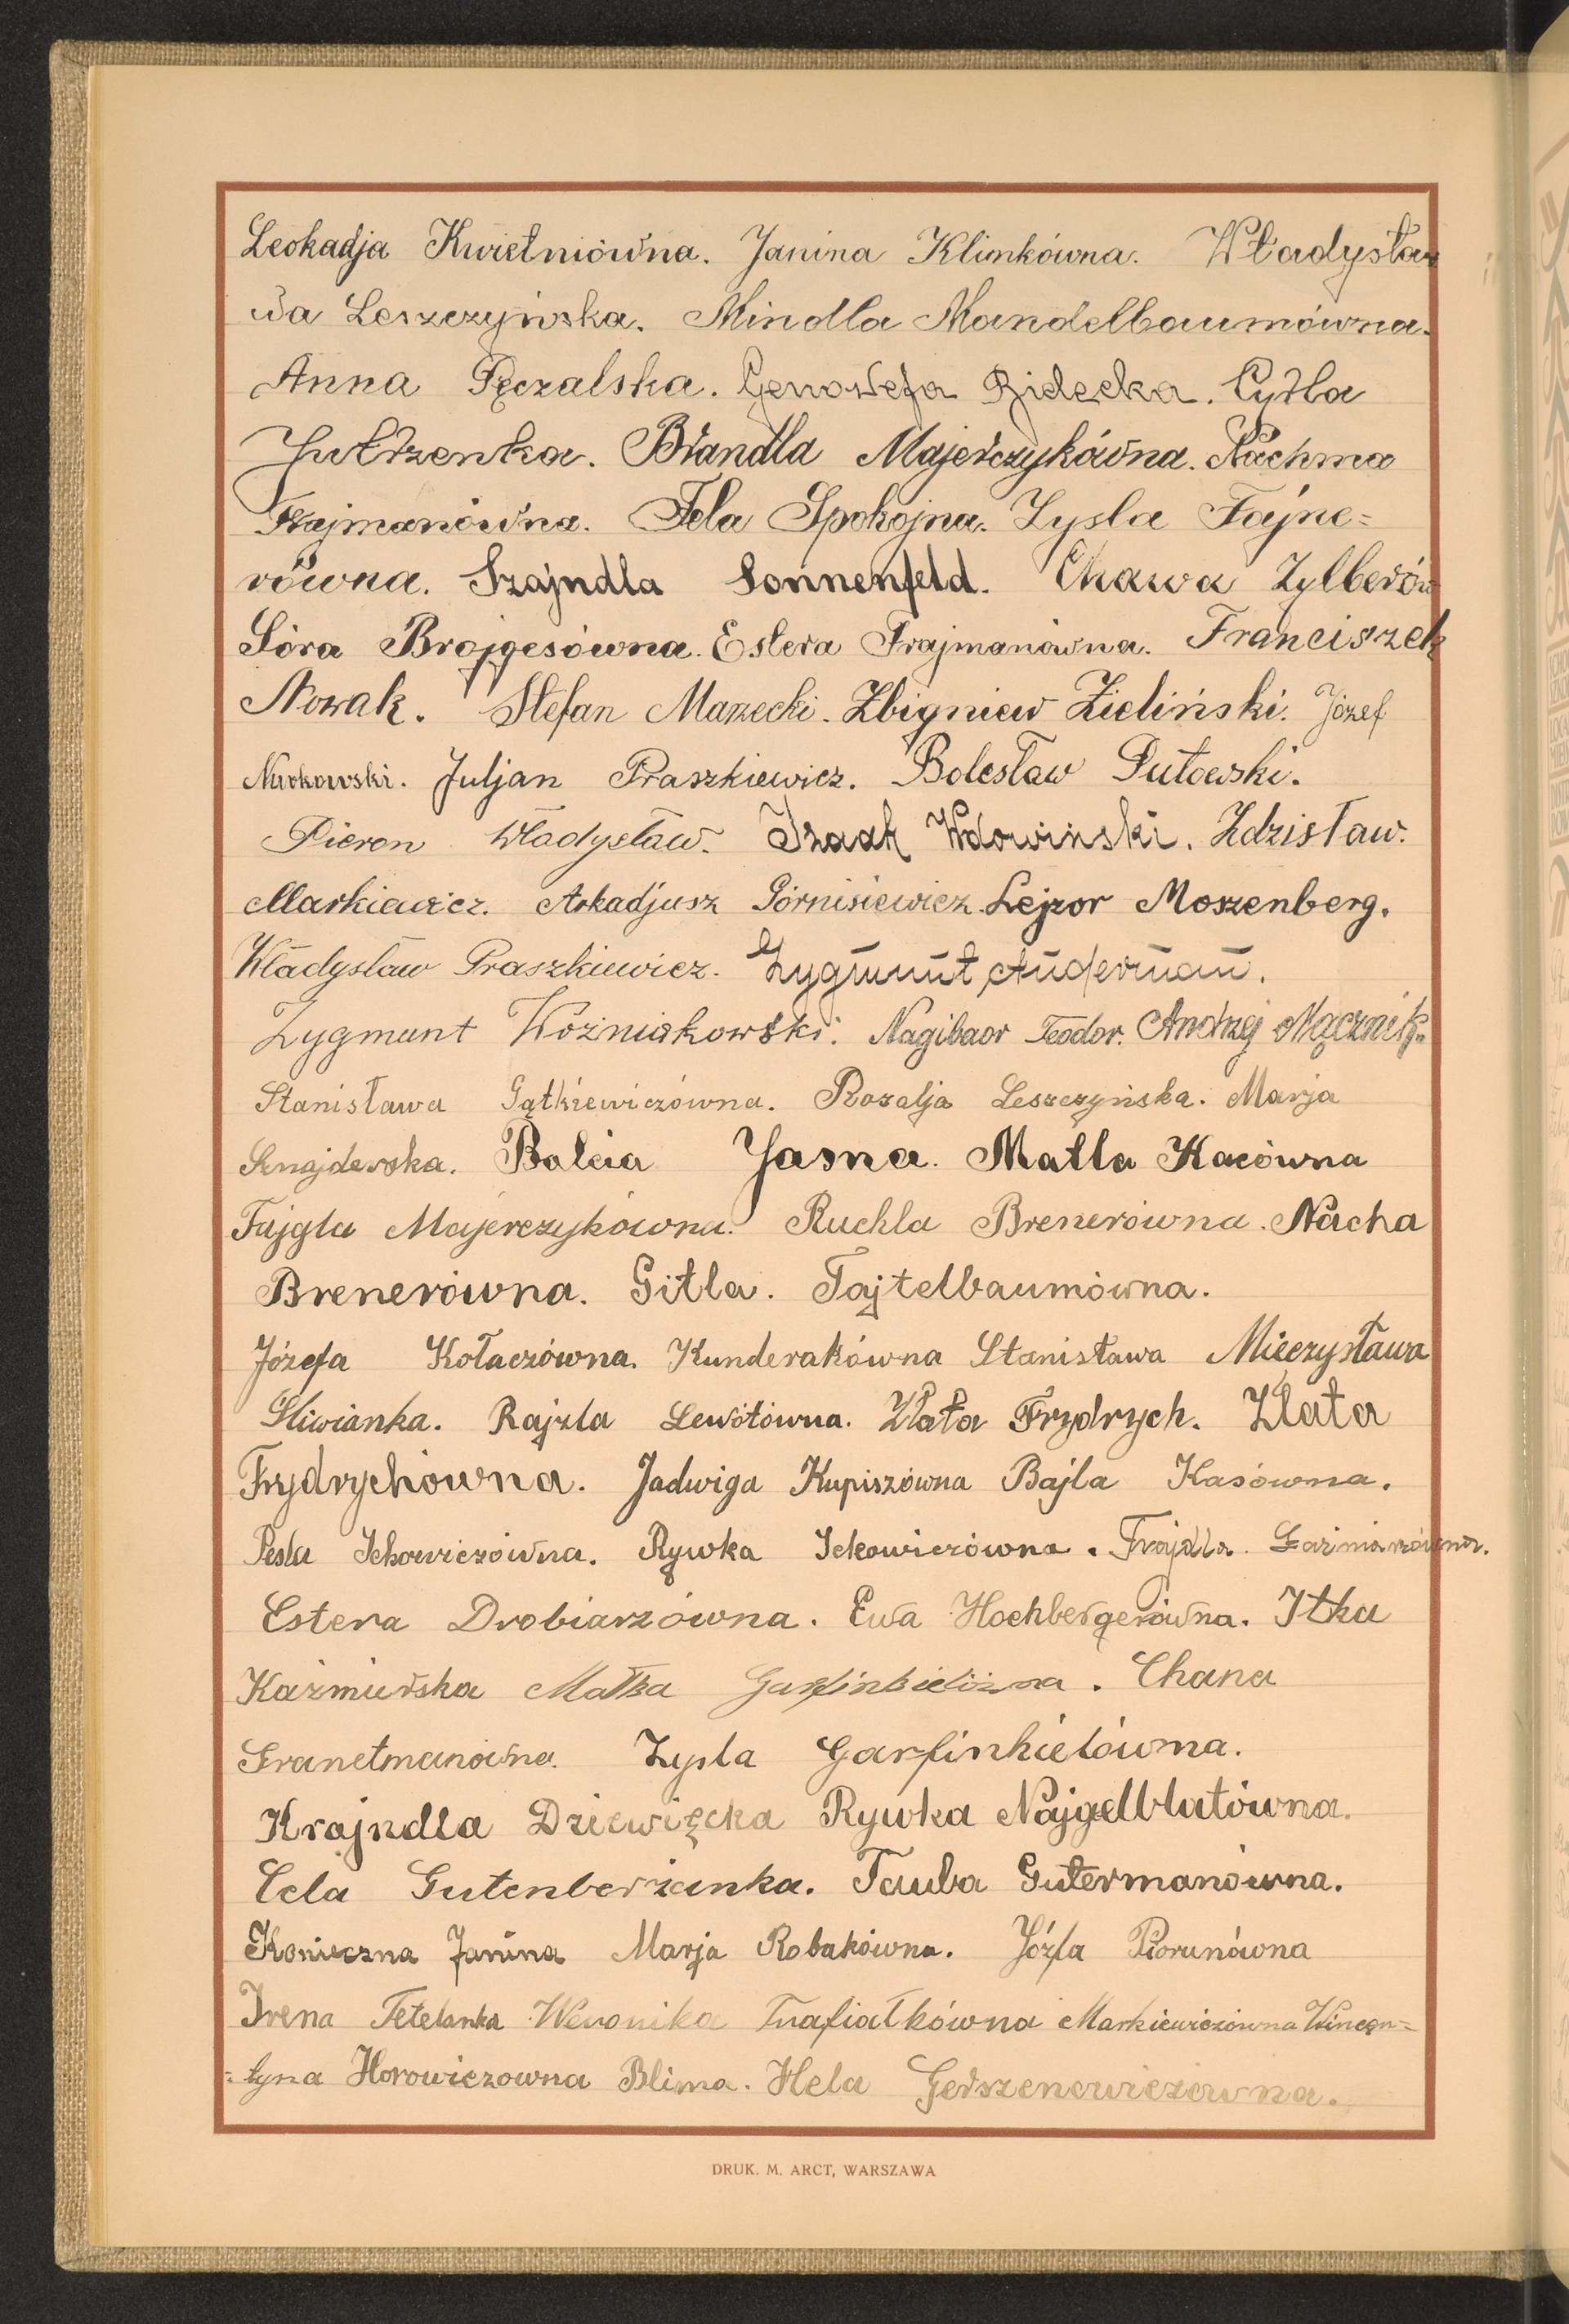 Leokadja Kwietniówna. Janina Klimkówna. Władysław
wa Leszczyńska. Mindla Mandelbaumówna.
Anna Pęczalska. Genowefa Cydla
Jutrzenka. Brandla Majerczykówna. Nachma
Frajmanówna. Fela Spokojna. Zysla Fajne=
równa. Szajndla Sonnenfeld. Chawa Zylberów
Sóra Brojgesówna. Estera Frajmanówna. Franciszek
Nowak. Stefan Marzecki. Zbigniew Zieliński. Józef
Nurkowski. Juljan Praszkiewicz. Bolesław Putowski.
Pieron Władysław. Izaak Wdowiński. Zdzisław.
Markiewicz. Arkadjusz Górnisiewicz. Lejzor Moszenberg.
Władysław Praszkiewicz. Zygmunt Anderman.
Zygmunt Woźniakowski. Nagibaor Teodor. Andrzej Mącznik.
Stanisława Gątkiewiczówna. Rozalja Leszczyńska. Marja
Sznajderska. Balcia Jasna. Matla Kacówna
Fajgla Majerczykówna. Ruchla Brenerówna. Nacha
Brenerówna. Gitla. Tajtelbaumówna.
Józefa Kołaczówna. Kunderakówna Stanisława Mieczysława
Śliwianka. Rajzla Lewótówna. Złata Frydrych. Zlata
Frydrychówna. Jadwiga Kupiszówna Bajla Kasówna.
Pesla Ickowiczówna. Rywka Ickowiczówna. Frajdla
Estera Drobiarzówna. Ewa Hochbergerówna. Itka
Kaźmierska Małka Garfinkielówna. Chana
Granetmanówna. Zysla Garfinkielówna.
Krajndla Dziewięcka Rywka Najgelblatówna.
Cela Gutenberżanka. Tauba Gutermanówna.
Konieczna Janina Marja Robakówna. Józfa Piorunówna
Irena Tetelanka Weronika Trafiałkówna Markiewiczówna Wincen=
=tyna Horowiczowna Blima. Hela Gerszenowiczówna.
DRUK. M. ARCT, WARSZAWA